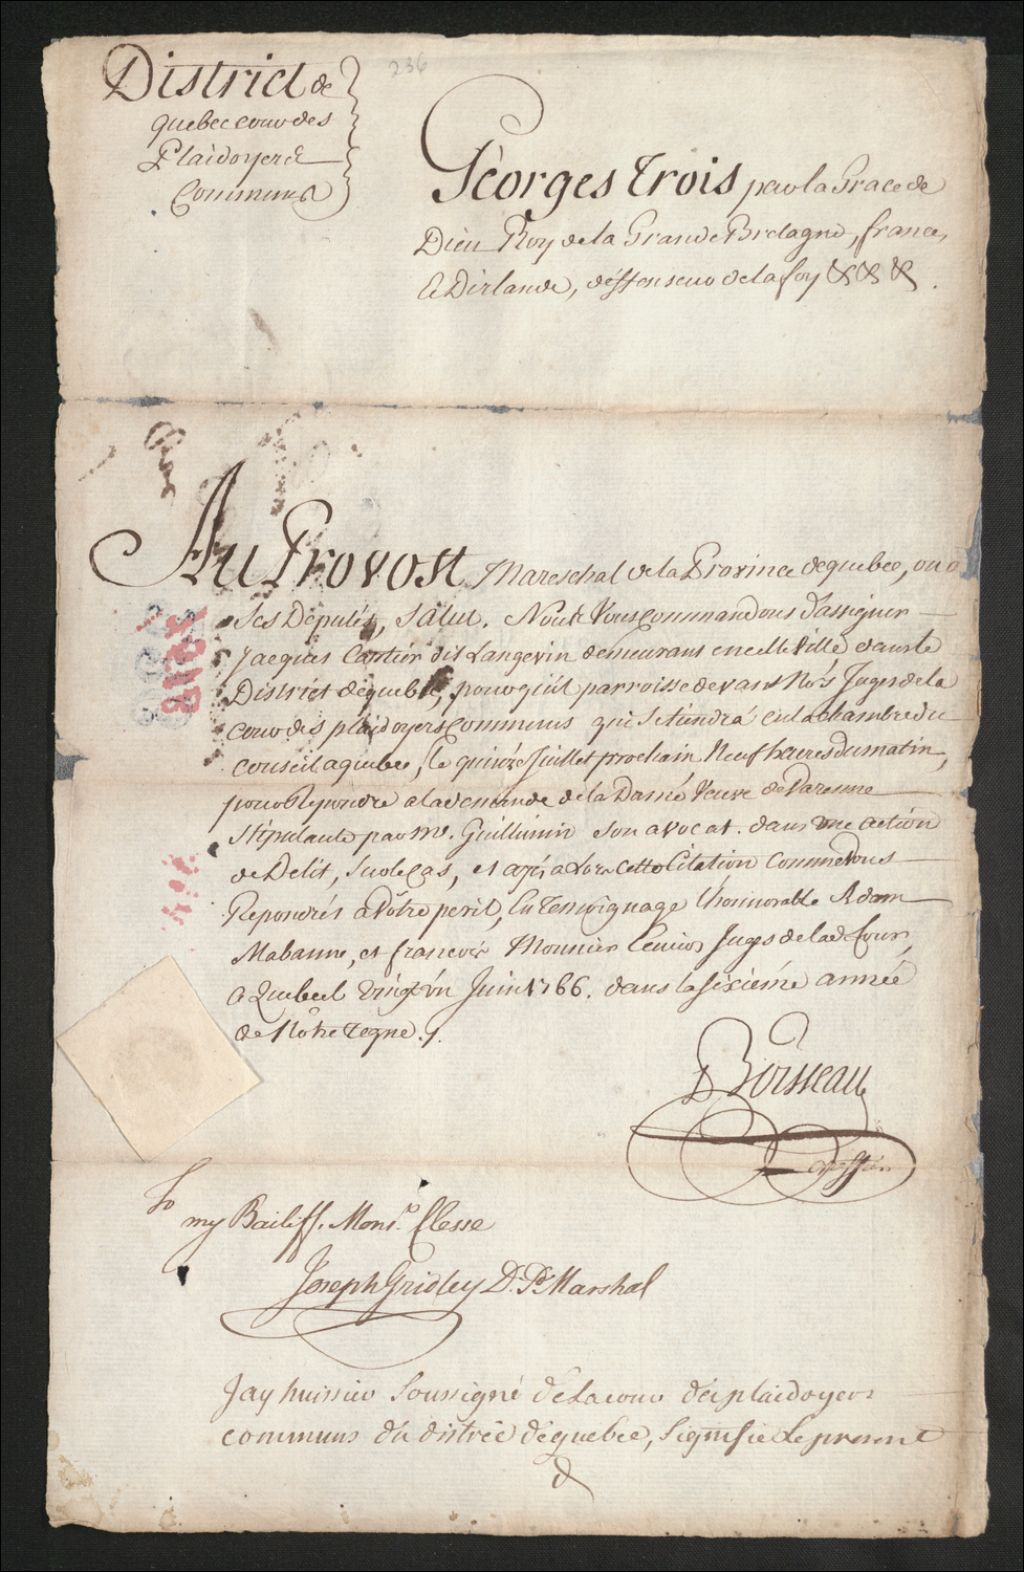 District de
quebec cour des
Plaidoyers
Communs
236
Géorges trois par la Grace de
Dieu Roy de la Grande Bretagne, france,
et Dirlande, deffenseur de la foy & & & .
Au Provost Mareschal de la Province de quebec, ou a
Ses Députés, Salut. Nous Vous Commandons dassigner
Jacques Cartier dit Langevin demeurant en cette Ville dans le
District de quebec, pour quil parroisse devant Nos Juges de la
cour des plaidoyers communs qui se tiendrá en la chambre du
conseil a quebec, le quinze Juillet prochain Neuf heures du matin,
pour Repondre a la demande de la Damé Veuve de Varenne
Stipulante par mr. Guillimin son avocat. dans une action
de Delit, Sur le Cas, et ayés alors cette Citation Comme Vous
Repondrés a Vôtre peril, En Temoignage Lhonnorable Adam
Mabanne, et francois Mounier Ecuiers Juges de lad. Cour,
a Quebec le Vingt un Juin 1766. dans la Sixiéme année
de Nôtre regne ./.
Boisseau
greffier
To
my Bailiff. Monsr. Clesse
Joseph Gridley D. P. Marshal
Jay huissier Soussigné de la cour des plaidoyers
communs du district de quebec, Signifié le present
&